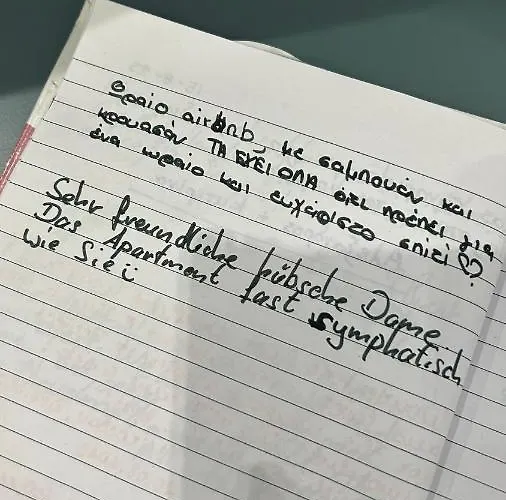 Ωραιο airbnb, με σαμπουάν και
κρουασαν ΤΑ ΕΧΕΙ ΟΛΑ οτι πρέπει για
ένα ωραίο και ευχάριστο σπίτι ♡
Sehr freundliche hübsche Dame.
Das Apartment fast symphatisch
wie Sie ü